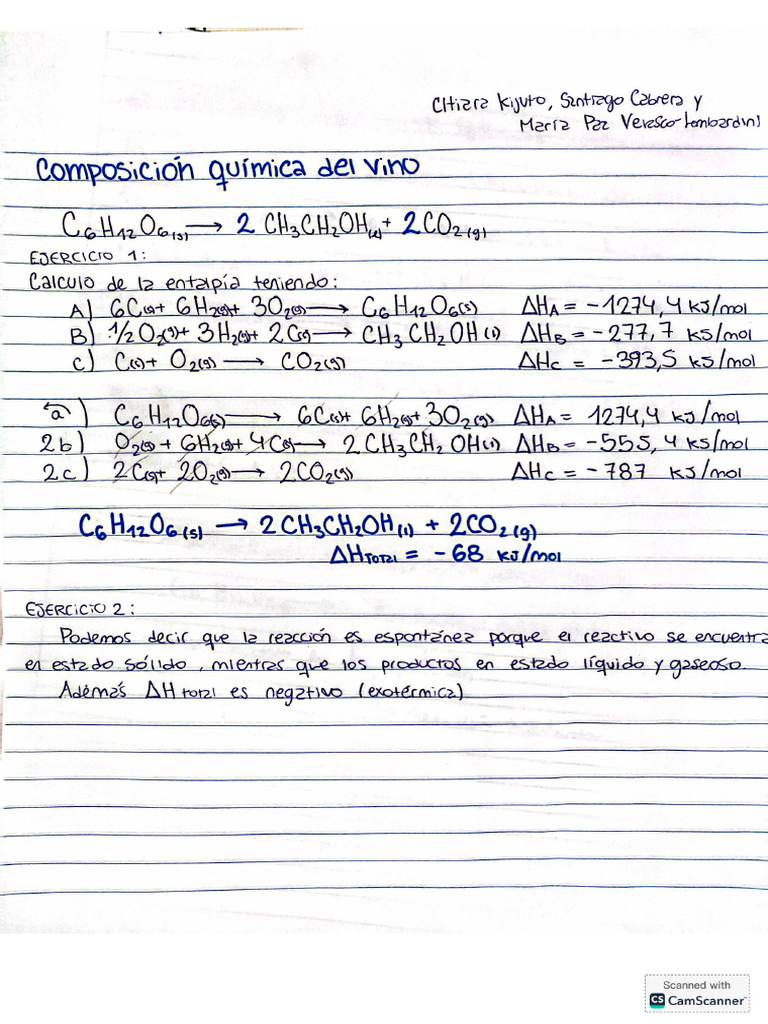 Chiara Kijuto, Santiago Cabrera y
María Paz Verasco-Lombardini
Composición química del vino
C₆H₁₂O₆(s) → 2 CH₃CH₂OH(l) + 2CO₂(g)
EJERCICIO 1:
Calculo de la entalpía teniendo:
A) 6C(s) + 6H₂(g) + 3O₂(g) → C₆H₁₂O₆(s) ΔHA = -1274,4 kJ/mol
B) 1/2O₂(g) + 3H₂(g) + 2C(s) → CH₃CH₂OH(l) ΔHB = -277,7 kJ/mol
C) C(s) + O₂(g) → CO₂(g) ΔHC = -393,5 kJ/mol
a) C₆H₁₂O₆(s) → 6C(s) + 6H₂(g) + 3O₂(g) ΔHA = 1274,4 kJ/mol
2b) O₂(g) + 6H₂(g) + 4C(s) → 2CH₃CH₂OH(l) ΔHB = -555,4 kJ/mol
2c) 2C(s) + 2O₂(g) → 2CO₂(g) ΔHC = -787 kJ/mol
C₆H₁₂O₆(s) → 2CH₃CH₂OH(l) + 2CO₂(g)
ΔHTOTAL = -68 kJ/mol
EJERCICIO 2:
Podemos decir que la reacción es espontánea porque el reactivo se encuentra
en estado sólido, mientras que los productos en estado líquido y gaseoso.
Además ΔH total es negativo (exotérmica)
Scanned with
CS CamScanner